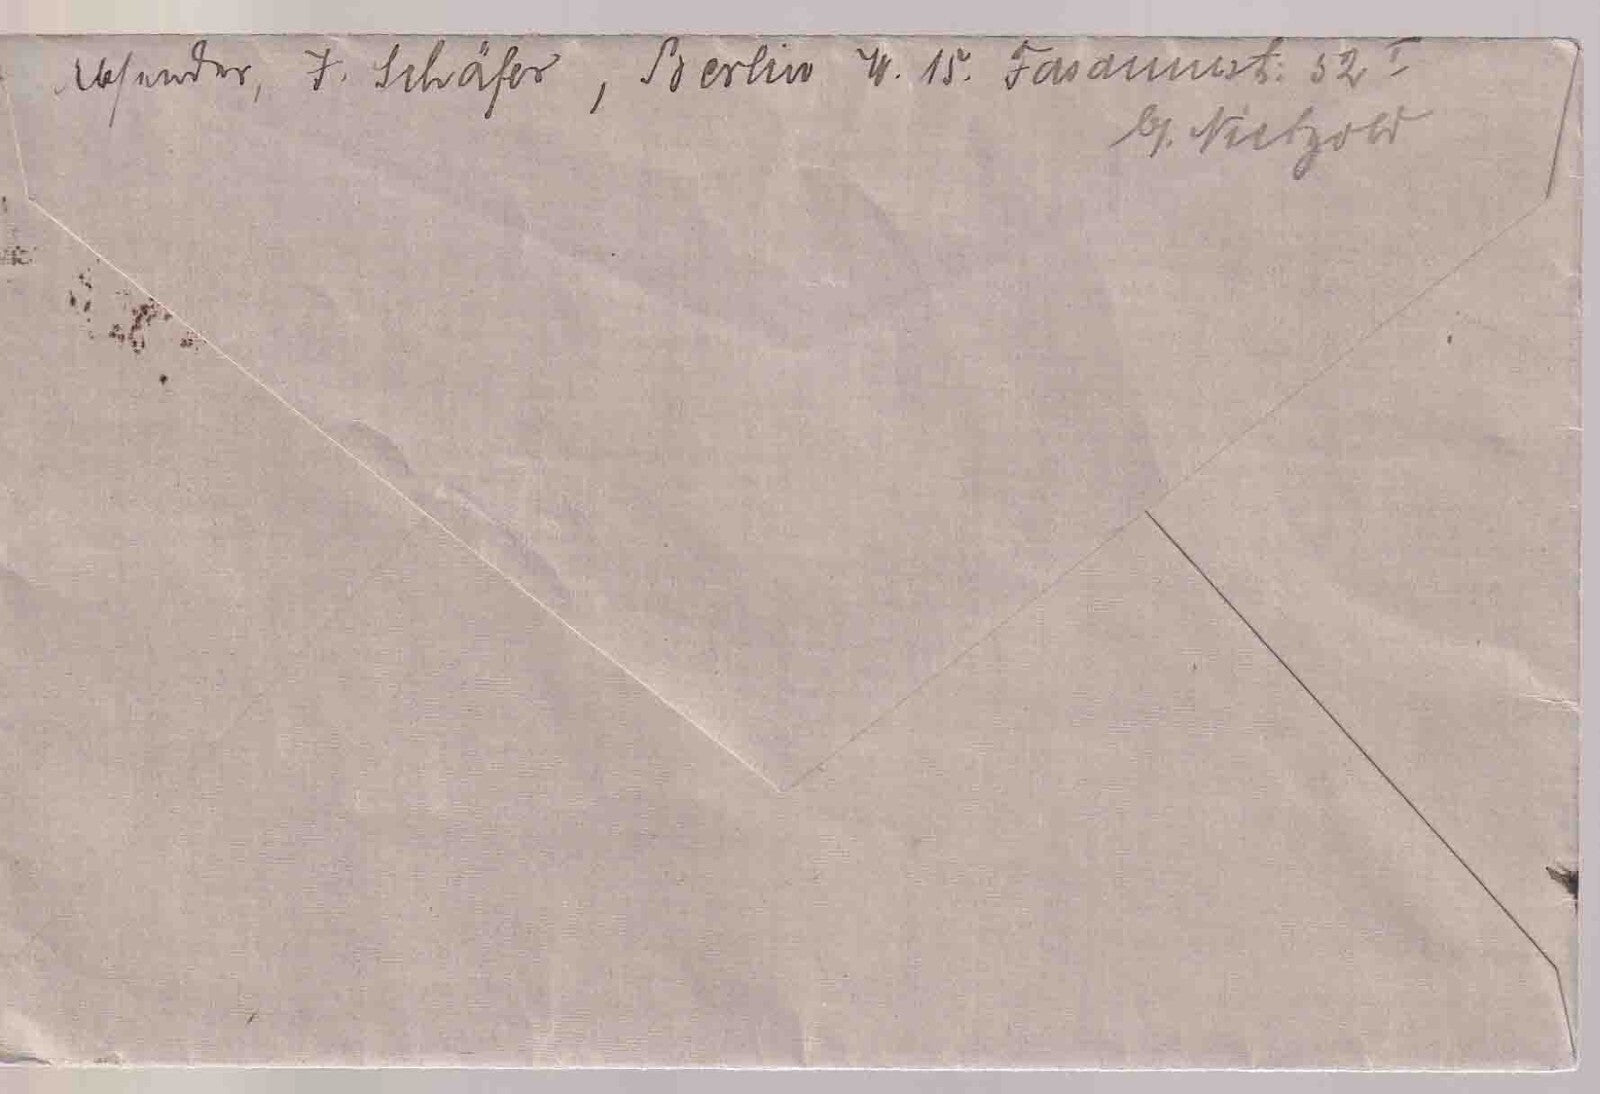 Absender, F. Schäfer, Berlin W. 15. Fasanenst. 52 I
b/. Nietzold